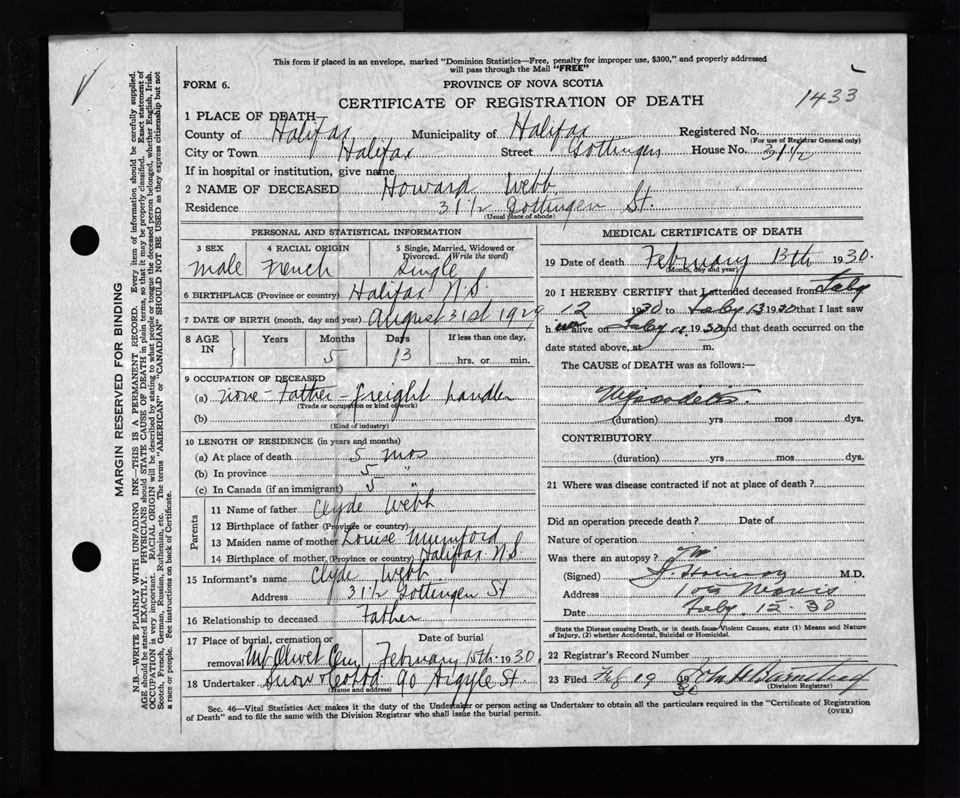 This form if placed in an envelope, marked "Dominion Statistics—Free, penalty for improper use, $300," and properly addressed
will pass through the Mail "FREE"
FORM 6.
PROVINCE OF NOVA SCOTIA
CERTIFICATE OF REGISTRATION OF DEATH
1433
1 PLACE OF DEATH—
County of Halifax Municipality of Halifax Registered No.
(For use of Registrar General only)
City or Town Halifax Street Gottingen House No. 31½
If in hospital or institution, give name
2 NAME OF DECEASED Howard Webb
Residence 31½ Gottingen St.
(Usual place of abode)
PERSONAL AND STATISTICAL INFORMATION
3 SEX 4 RACIAL ORIGIN 5 Single, Married, Widowed or Divorced. (Write the word)
male French Single
6 BIRTHPLACE (Province or country) Halifax N.S.
7 DATE OF BIRTH (month, day and year) August 31st 1929
8 AGE IN Years Months Days If less than one day,
5 13 hrs. or min.
9 OCCUPATION OF DECEASED
(a) none - Father - freight handler
(Trade or occupation or kind of work)
(b)
(Kind of industry)
10 LENGTH OF RESIDENCE (in years and months)
(a) At place of death 5 mos
(b) In province 5 "
(c) In Canada (if an immigrant) 5 "
Parents
11 Name of father Clyde Webb
12 Birthplace of father (Province or country)
13 Maiden name of mother Louise Mumford
14 Birthplace of mother (Province or country) Halifax N.S.
15 Informant's name Clyde Webb
Address 31½ Gottingen St
16 Relationship to deceased Father
17 Place of burial, cremation or removal Date of burial
Mt Olivet Cem February 15th 1930
18 Undertaker Snow & Co 90 Argyle St.
(Name and address)
MEDICAL CERTIFICATE OF DEATH
19 Date of death February 13th 1930.
(Month, day and year)
20 I HEREBY CERTIFY that I attended deceased from Feby
12 1930 to Feby 13 1930 that I last saw
h alive on Feby 1930 and that death occurred on
date stated above, at m.
The CAUSE of DEATH was as follows:—
(duration) yrs mos dys.
CONTRIBUTORY
(duration) yrs mos dys.
21 Where was disease contracted if not at place of death?
Did an operation precede death? Date of
Nature of operation
Was there an autopsy? No
(Signed) M.D.
Address 109 Morris
Date Feby. 12-30
State the Disease causing Death, or in death from Violent Causes, state (1) Means and Nature
of Injury, (2) whether Accidental, Suicidal or Homicidal.
22 Registrar's Record Number
23 Filed Feb 19 1930 John H Barnstead
(Division Registrar)
Sec. 46—Vital Statistics Act makes it the duty of the Undertaker or person acting as Undertaker to obtain all the particulars required in the "Certificate of Registration
of Death" and to file the same with the Division Registrar who shall issue the burial permit.
(OVER)
MARGIN RESERVED FOR BINDING
N.B.—WRITE PLAINLY WITH UNFADING INK—THIS IS A PERMANENT RECORD. Every item of information should be carefully supplied.
AGE should be stated EXACTLY. PHYSICIANS should STATE CAUSE OF DEATH in plain terms, so that it may be properly classified. Exact statement of
OCCUPATION is very important. RACIAL ORIGIN will be described by stating to what people or tongue the deceased person belonged, whether English, Irish,
Scotch, French, German, Russian, Ruthenian, etc. The terms "AMERICAN" or "CANADIAN" SHOULD NOT BE USED as they express citizenship but not
a race or people. See instructions on back of Certificate.